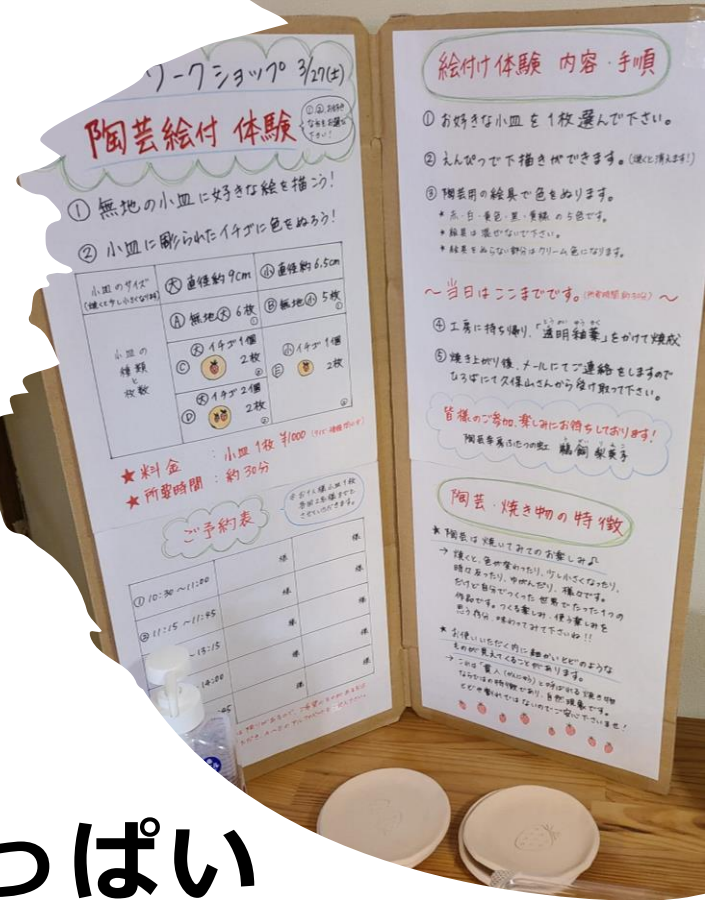 ワークショップ 3/27(土)
陶芸絵付 体験
① 無地の小皿に好きな絵を描こう!
② 小皿に彫られたイチゴに色をぬろう!
小皿のサイズ
(焼くと少し小さくなります)
大 直径約9cm
小 直径約6.5cm
小皿の種類と枚数
A 無地大 6枚
B 無地小 5枚
C 大イチゴ1個 2枚
E 小イチゴ1個 2枚
D 大イチゴ2個 2枚
★料金 : 小皿1枚 ¥1000
★所要時間 : 約30分
ご予約表
① 10:30〜11:00 様 様
② 11:15〜11:45 様 様
様 様
様 様
様 様
絵付け体験 内容・手順
① お好きな小皿を1枚選んで下さい。
② えんぴつで下描きができます。(焼くと消えます!)
③ 陶芸用の絵具で色をぬります。
* 絵具は混ぜないで下さい。
* 絵具をぬらない部分はクリーム色になります。
〜当日はここまでです。(所要時間 約30分)〜
④ 工房に持ち帰り、「透明釉薬」をかけて焼成
⑤ 焼き上がり後、メールにてご連絡をしますので
ひろばにて久保山さんから受け取って下さい。
皆様のご参加、楽しみにお待ちしております!
陶芸・焼き物の特徴
* 陶芸は焼いてみてのお楽しみ♪
→ 焼くと、色が変わったり、少し小さくなったり、
時々反ったり、ゆがんだり、様々です。
だけど自分でつくった世界でたった1つの
作品です。つくる楽しみ・使う楽しみを
思う存分、味わってみて下さいね!!
* お使いいただく内に細かいヒビのような
ものが見えてくることがあります。
→ これは"貫入(かんにゅう)"と呼ばれる焼き物
ならではの特徴であり、自然現象です。
ヒビや割れではないのでご安心下さいませ!
っぱい